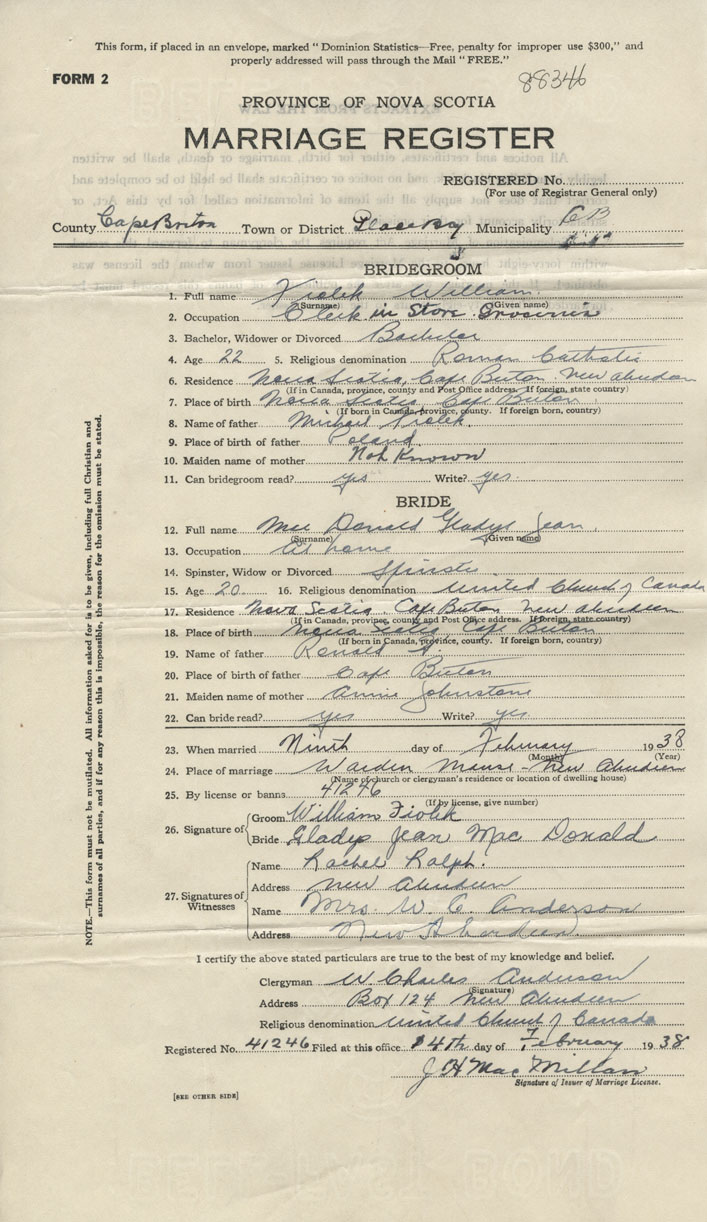 This form, if placed in an envelope, marked "Dominion Statistics—Free, penalty for improper use $300," and
properly addressed will pass through the Mail "FREE."
FORM 2
88346
PROVINCE OF NOVA SCOTIA
MARRIAGE REGISTER
REGISTERED No.
(For use of Registrar General only)
County Cape Breton Town or District Glace Bay Municipality C B
BRIDEGROOM
1. Full name Fiolek William
(Surname) (Given name)
2. Occupation Clerk in Store. Groceries
3. Bachelor, Widower or Divorced Bachelor
4. Age 22 5. Religious denomination Roman Catholic
6. Residence Nova Scotia, Cape Breton New Aberdeen
(If in Canada, province, county and Post Office address. If foreign, state country)
7. Place of birth Nova Scotia Cape Breton
(If born in Canada, province, county. If foreign born, country)
8. Name of father Michael Fiolek
9. Place of birth of father Poland
10. Maiden name of mother Not Known
11. Can bridegroom read? yes Write? yes
BRIDE
12. Full name Mac Donald Gladys Jean
(Surname) (Given name)
13. Occupation At home
14. Spinster, Widow or Divorced Spinster
15. Age 20 16. Religious denomination United Church of Canada
17. Residence Nova Scotia Cape Breton New Aberdeen
(If in Canada, province, county and Post Office address. If foreign, state country)
18. Place of birth Nova Scotia Cape Breton
(If born in Canada, province, county. If foreign born, country)
19. Name of father Ronald
20. Place of birth of father Cape Breton
21. Maiden name of mother Annie Johnstone
22. Can bride read? yes Write? yes
23. When married Ninth day of February 1938
(Month) (Year)
24. Place of marriage Warden Manse - New Aberdeen
(Name of church or clergyman's residence or location of dwelling house)
25. By license or banns 41246
(If by license, give number)
26. Signature of
Groom William Fiolek
Bride Gladys Jean Mac Donald
27. Signatures of Witnesses
Name Rachel Ralph.
Address New Aberdeen
Name Mrs. W. C. Anderson
Address New Aberdeen
I certify the above stated particulars are true to the best of my knowledge and belief.
Clergyman W. Charles Anderson
(Signature)
Address Box 124 New Aberdeen
Religious denomination United Church of Canada
Registered No. 41246 Filed at this office 14th day of February 1938
J H Mac Millan
Signature of Issuer of Marriage License.
[SEE OTHER SIDE]
NOTE.—This form must not be mutilated. All information asked for is to be given, including full Christian and
surnames of all parties, and if for any reason this is impossible, the reason for the omission must be stated.